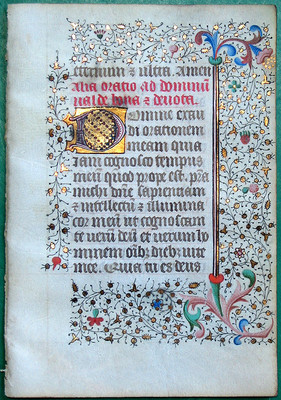 eternum & ultra. Amen
Alia oratio ad dominum
valde bona & devota.
Domine exau
di orationem
meam quia
iam cognosco tempus
meum quod prope est. pra
mischi dne sapientiam
& intellectum & illumina
cor meum ut cognoscam
te verum deum et verum ho
minem oibus diebus vite
mee. Quia tu es deus